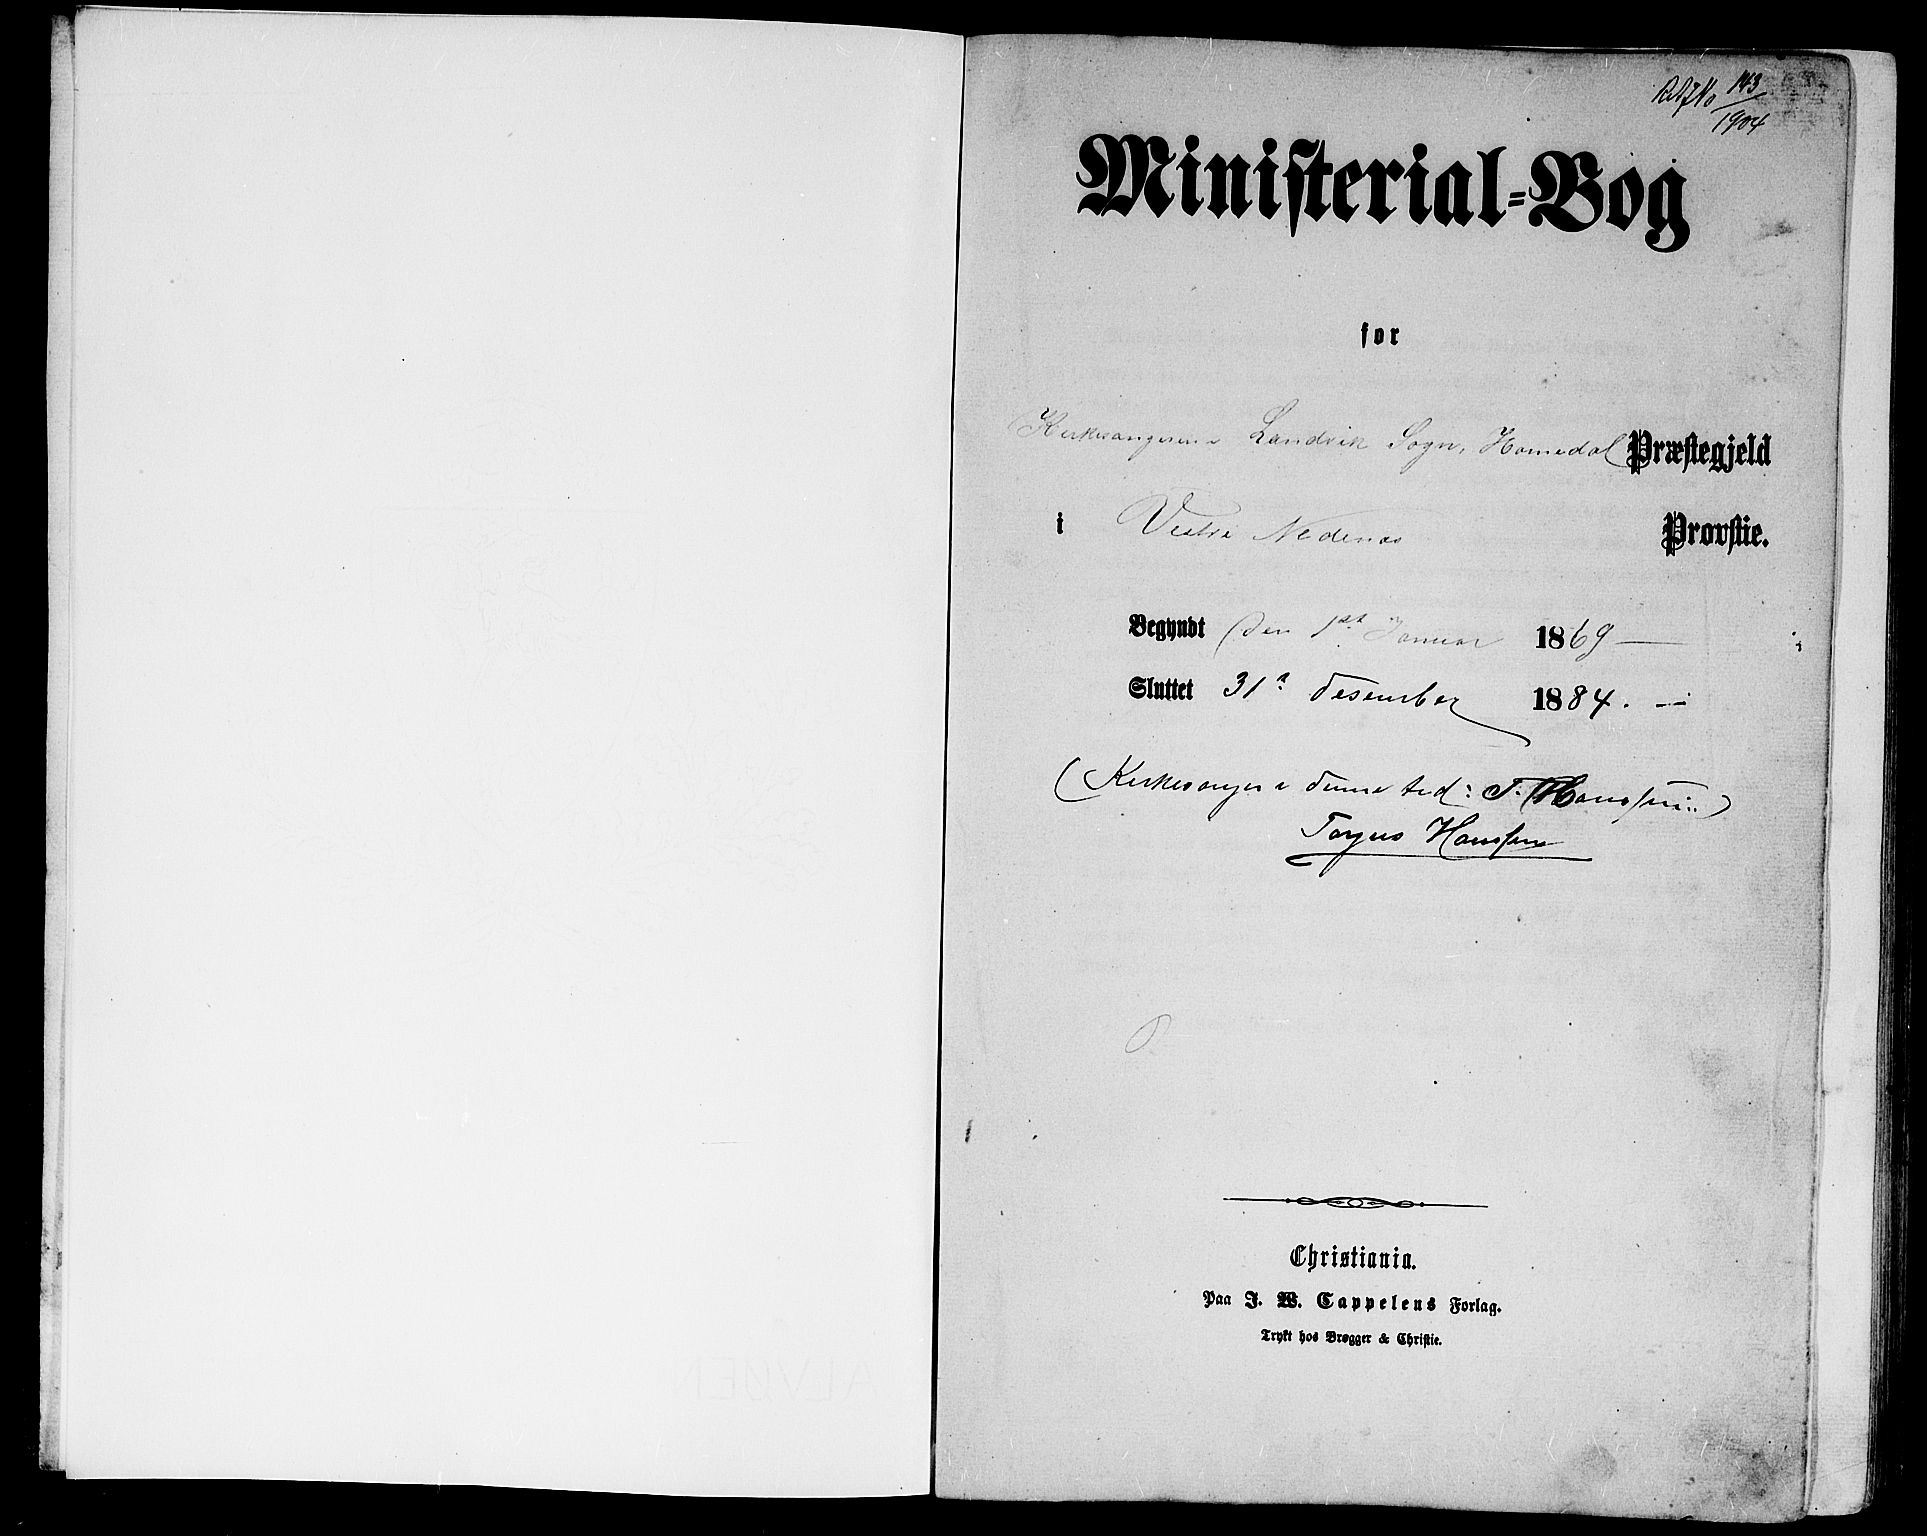 143
1904
Ministerial-Bog
for
Kirkesangeren i Landvik Sogn, Homedal Præstegjeld
i Vestre Nedenæs Provstie.
Begyndt den 1st Januar 1869
Sluttet 31te Desember 1884.
(Kirkesanger i denne tid: T. Hanssen:)
Torjus Hanssen
Christiania.
Paa J. W. Cappelens Forlag.
Trykt hos Brøgger & Christie.
ALVØEN